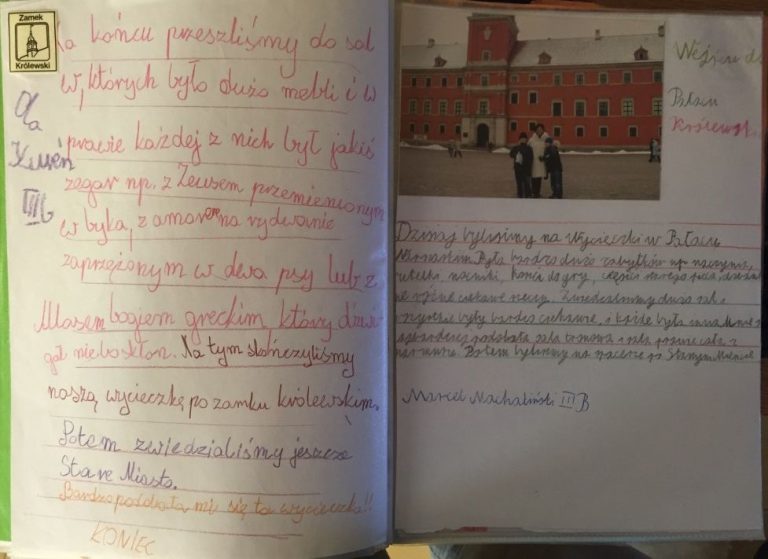 Zamek
Królewski
Na końcu przeszliśmy do sal
w których było dużo mebli i w
prawie każdej z nich był jakiś
zegar np. z Zeusem przemienionym
w byka, z amorem na rydwanie
zaprzężonym w dwa psy lub z
Atlasem bogiem greckim, który dźwi-
gał nieboskłon. Na tym skończyliśmy
naszą wycieczkę po zamku królewskim.
Potem zwiedzaliśmy jeszcze
Stare Miasto.
Bardzo podobała mi się ta wycieczka!!
KONIEC
Ola
III b
Pałacu
Królewsk
Dzisiaj byliśmy na Wycieczki w Pałacu
Była bardzo dużo zabytków np. naczynia,
różne ciekawe rzeczy. Zwiedzaliśmy dużo sal
wszystkie były bardzo ciekawe, i każde była inna
podobała sala tronowa i sala
Potem byliśmy na spacerze po Starym Mieście
Marcel Machaliński III B